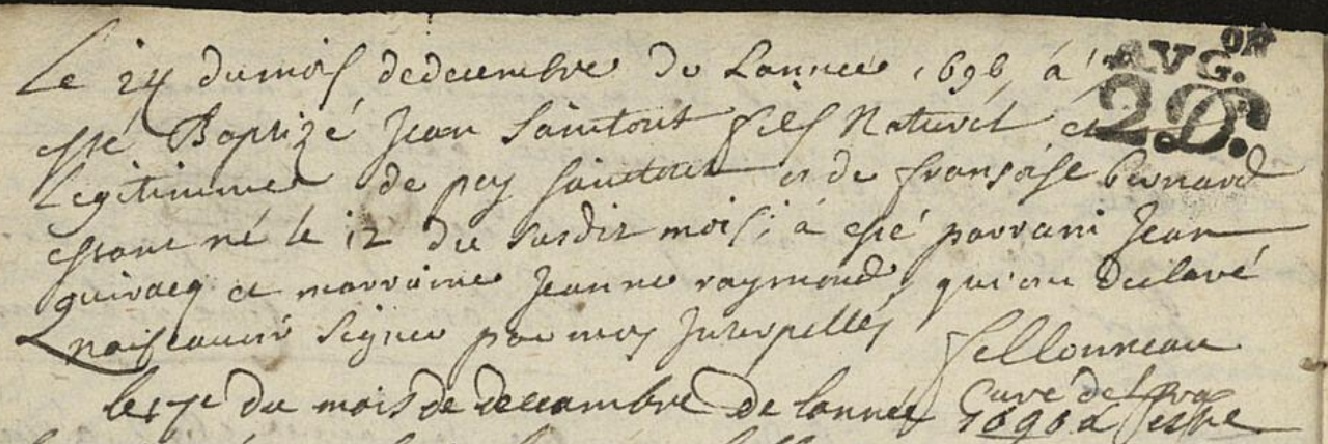 Le 24 du mois de decembre de Lannée 1696, à
AVG.ON
2 D.
esté Baptizé Jean Saintout fils Naturel et
Legitimme de pey saintout et de fransoise bernard
estant né le 12 du susdit mois; à esté parrain Jean
et marraine Jeanne raymond, qui ont declaré
signer par moy Interpellés
fellonneau
Curé de
le 17e du mois de decembre de lannée 1696 a estre